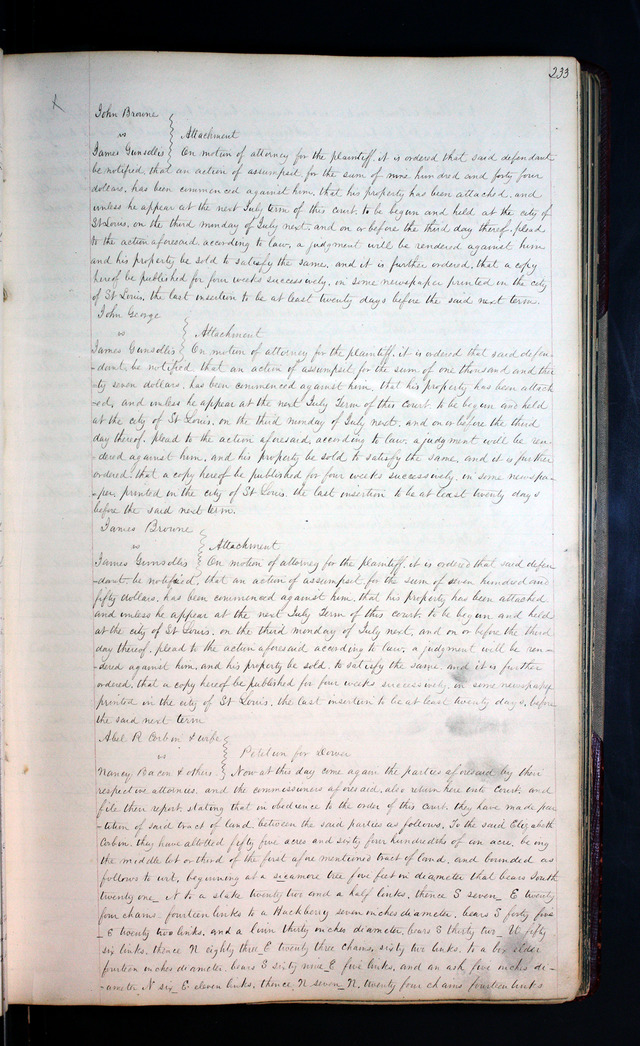 233
John Browne
vs
Attachment
James Gunsollis On motion of attorney for the plaintiff, it is ordered that said defendant
be notified, that an action of assumpsit for the sum of nine hundred and forty four
dollars, has been commenced against him, that his property has been attached, and
unless he appear at the next July term of this court, to be begun and held at the city of
St Louis, on the third monday of July next, and on or before the third day thereof, plead
to the action aforesaid, according to law, a judgment will be rendered against him
and his property be sold to satisfy the same, and it is further ordered, that a copy
hereof be published for four weeks successively, in some newspaper printed in the city
of St Louis, the last insertion to be at least twenty days before the said next term.
John George
vs
Attachment
James Gunsollis On motion of attorney for the plaintiff, it is ordered that said defen-
-dant, be notified, that an action of assumpsit for the sum of one thousand and thir
ty seven dollars, has been commenced against him, that his property has been attach
-ed, and unless he appear at the next July Term of this Court to be begun and held
at the city of St Louis, on the third monday of July next, and on or before the third
day thereof, plead to the action aforesaid, according to law, a judgment will be ren-
-dered against him, and his property be sold to satisfy the same, and it is further
ordered, that a copy hereof be published for four weeks successively, in some newspa-
-per, printed in the city of St Louis, the last insertion to be at least twenty days
before the said next term.
James Browne
vs
Attachment
James Gunsollis On motion of attorney for the plaintiff, it is ordered that said defen
-dant, be notified, that an action of assumpsit for the sum of seven hundred and
fifty dollars, has been commenced against him, that his property has been attached
and unless he appear at the next July Term of this court, to be begun and held
at the city of St Louis, on the third monday of July next, and on or before the third
day thereof, plead to the action aforesaid according to law, a judgment will be ren-
-dered against him, and his property be sold, to satisfy the same, and it is further
ordered, that a copy hereof be published for four weeks successively, in some newspaper
printed in the city of St Louis, the last insertion to be at least twenty days, before
the said next term
Abel R Corbin & wife
vs
Petition for Dower
Nancy Bacon & others Now at this day come again the parties aforesaid by their
respective attornies, and the commissioners aforesaid, also return here into Court, and
file their report, stating that in obedience to the order of this court, they have made par
-tition of said tract of land, between the said parties as follows, To the said Elizabeth
Corbin, they have allotted fifty five acres and sixty four hundredths of an acre, being
the middle lot or third of the first afore mentioned tract of land, and bounded as
follows to wit, beginning at a sicamore tree five feet in diameter that bears South
twenty one_ N to a stake twenty two and a half links, thence S seven_ E twenty
four chains fourteen links to a Hackberry seven inches diameter, bears S forty five
_E twenty two links, and a thirty inches diameter, bears S thirty two_ W fifty
six links, thence N eighty three_E twenty three chains, sixty two links, to a box elder
fourteen inches diameter, bears S sixty nine_E five links, and an ash, five inches di-
-ameter N six_ E eleven links, thence N seven_ N, twenty four chains fourteen links